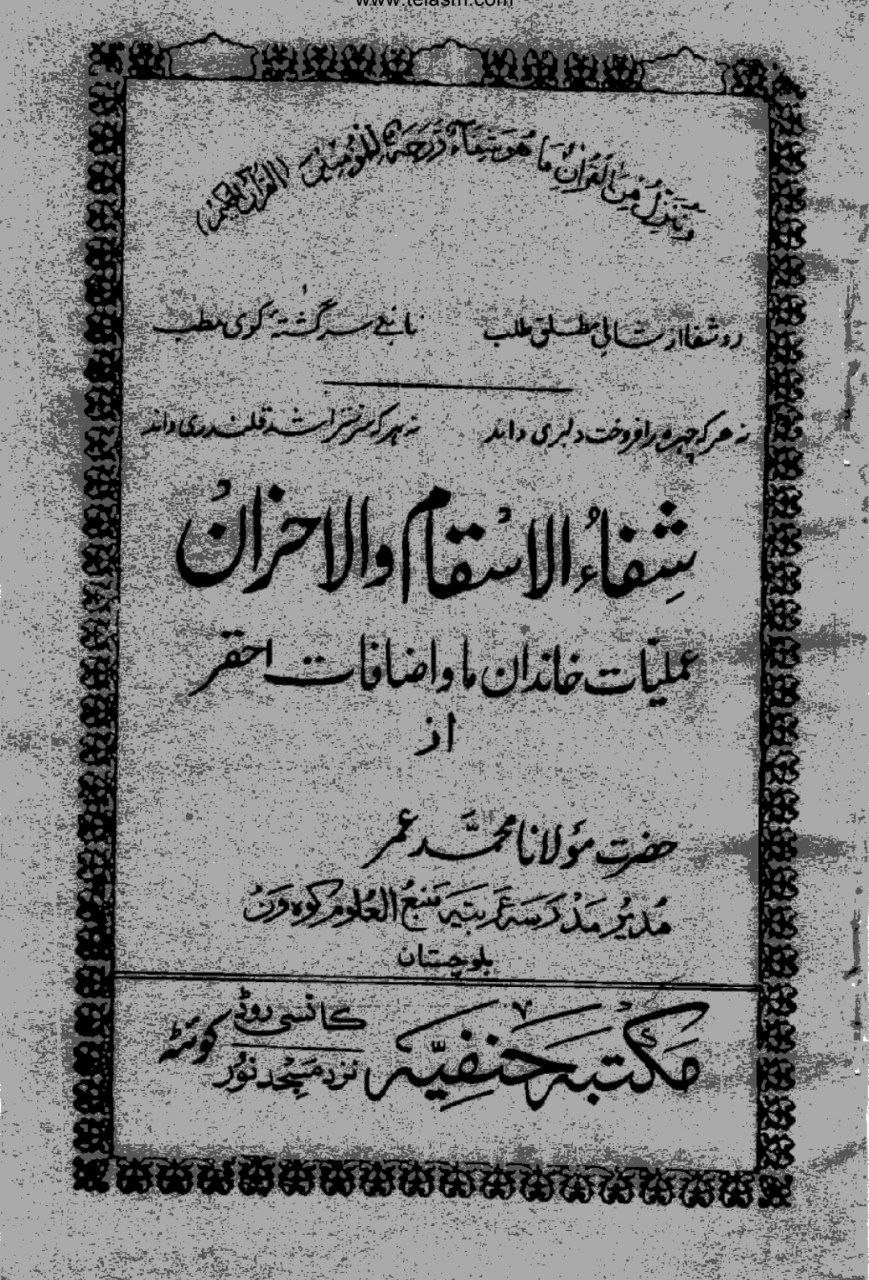 www.telasm.com
وَنُنَزِّلُ مِنَ الْقُرْآنِ مَا هُوَ شِفَاءٌ وَّرَحْمَةٌ لِّلْمُؤْمِنِينَ (القرآن الحکیم)
رو شفا از شافی مطلق طلب تا نئے سرگشتہ کوی مطب
نہ هرکہ چہرہ برافروخت دلبری داند نہ ہرکہ سر بتراشد قلندری داند
شِفاءُ الاسْقام والاحزانْ
عملیّات خاندان ما واضافات احقر
از
حضرت مَولانا محمَّد عمر
مُدیرُ مَدْرَسَہ عَرَبیَّہ مَنبَعُ العُلوم کوہ وَنْ
بلوچستان
مکتبہ حَنفِیَّہ کانسی روڈ نزد مَسْجد نُور کوئٹہ